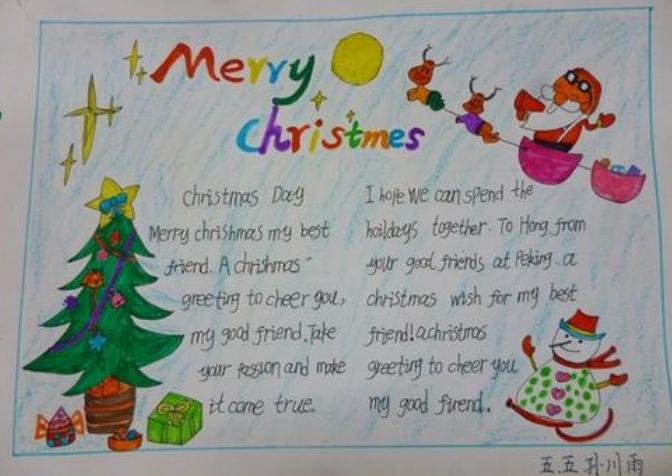 Merry
Christmes
Christmas Day
Merry chrishmas my best
friend. A chrishmas
greeting to cheer you,
my good friend. Take
your passion and make
it come true.
I hope we can spend the
hoildays together. To Hong from
your good friends at Peking. a
christmas wish for my best
friend! a christmas
greeting to cheer you
my good firend.
五.五 孙川雨